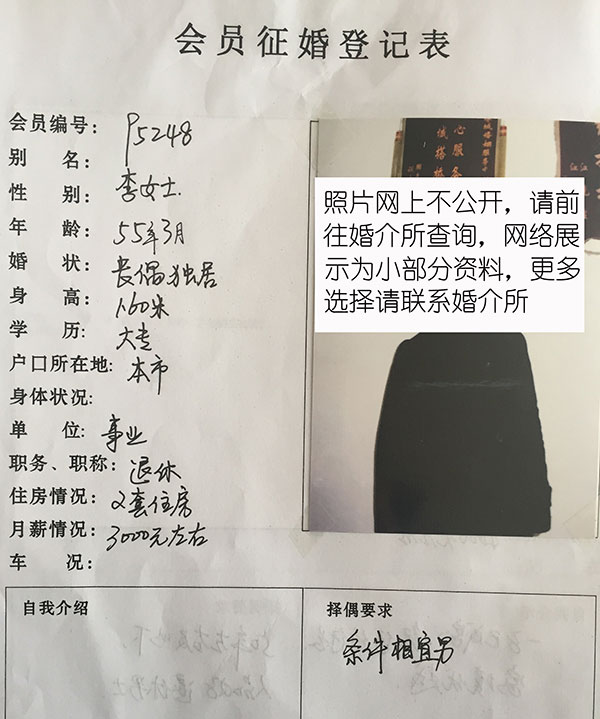 会员征婚登记表
会员编号: P5248
别 名:
性 别: 李女士.
年 龄: 55年3月
婚 状: 丧偶独居
身 高: 1.60米
学 历: 大专
户口所在地: 本市
身体状况:
单 位: 事业
职务、职称: 退休
住房情况: 2套住房
月薪情况: 3000元左右
车 况:
心服务
线搭桥
照片网上不公开，请前
往婚介所查询，网络展
示为小部分资料，更多
选择请联系婚介所
自我介绍
择偶要求
条件相宜男